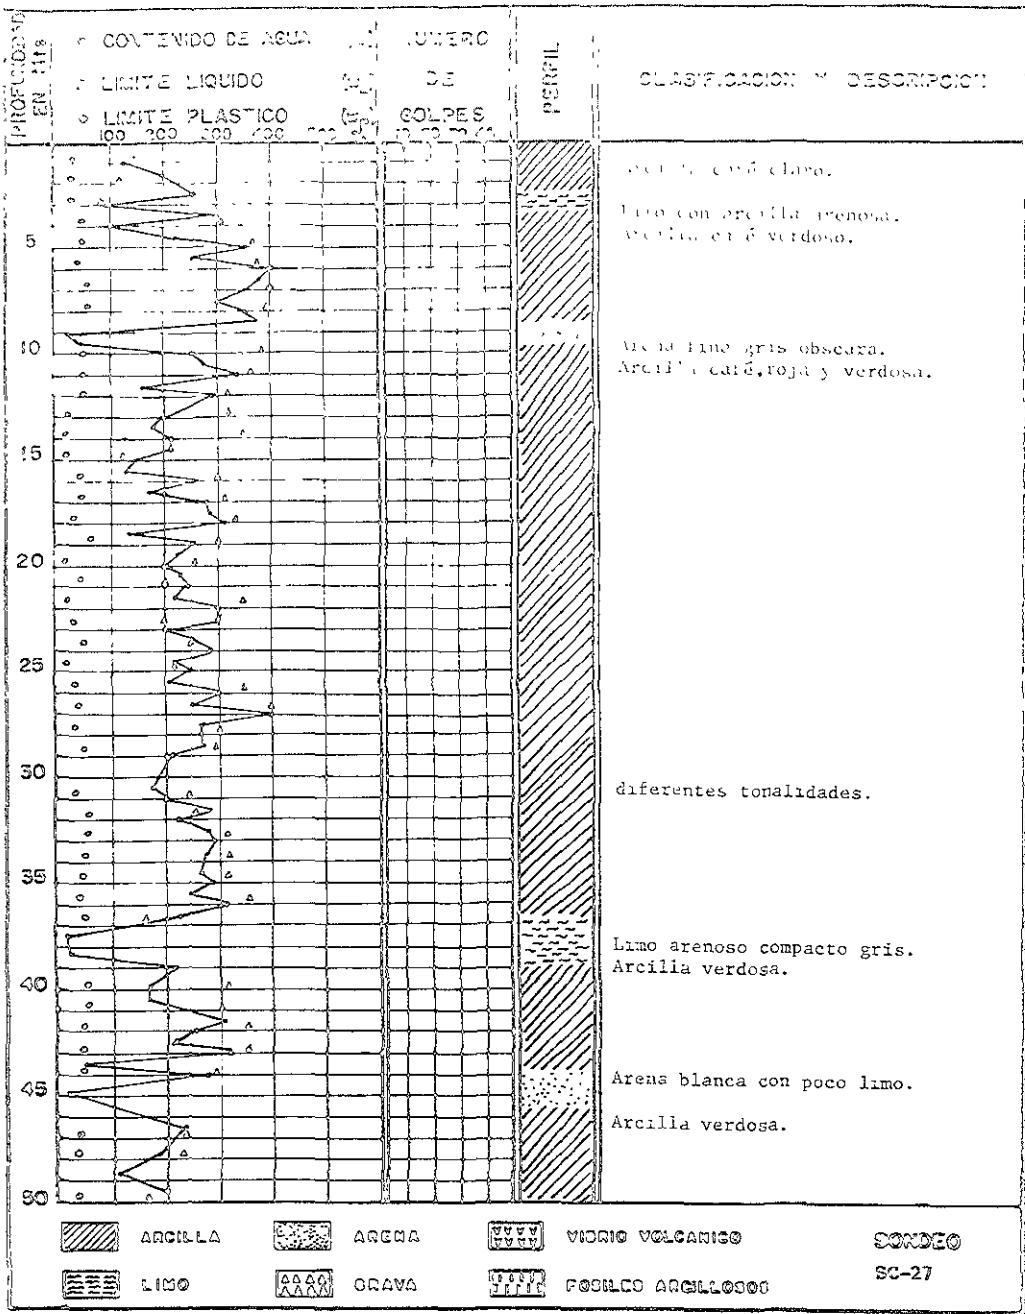 PROFUNDIDAD
EN Mts
CONTENIDO DE AGUA
LIMITE LIQUIDO
LIMITE PLASTICO
100 200 300 400 500
NUMERO
DE
GOLPES
PERFIL
CLASIFICACION Y DESCRIPCION
5
10
15
20
25
30
35
40
45
50
café claro.
Limo con arcilla arenosa.
Arcilla café verdoso.
Arena fina gris obscura.
Arcilla café,roja y verdosa.
diferentes tonalidades.
Limo arenoso compacto gris.
Arcilla verdosa.
Arena blanca con poco limo.
Arcilla verdosa.
ARCILLA
ARENA
VIDRIO VOLCANICO
LIMO
GRAVA
FOSILES ARCILLOSOS
SONDEO
SC-27